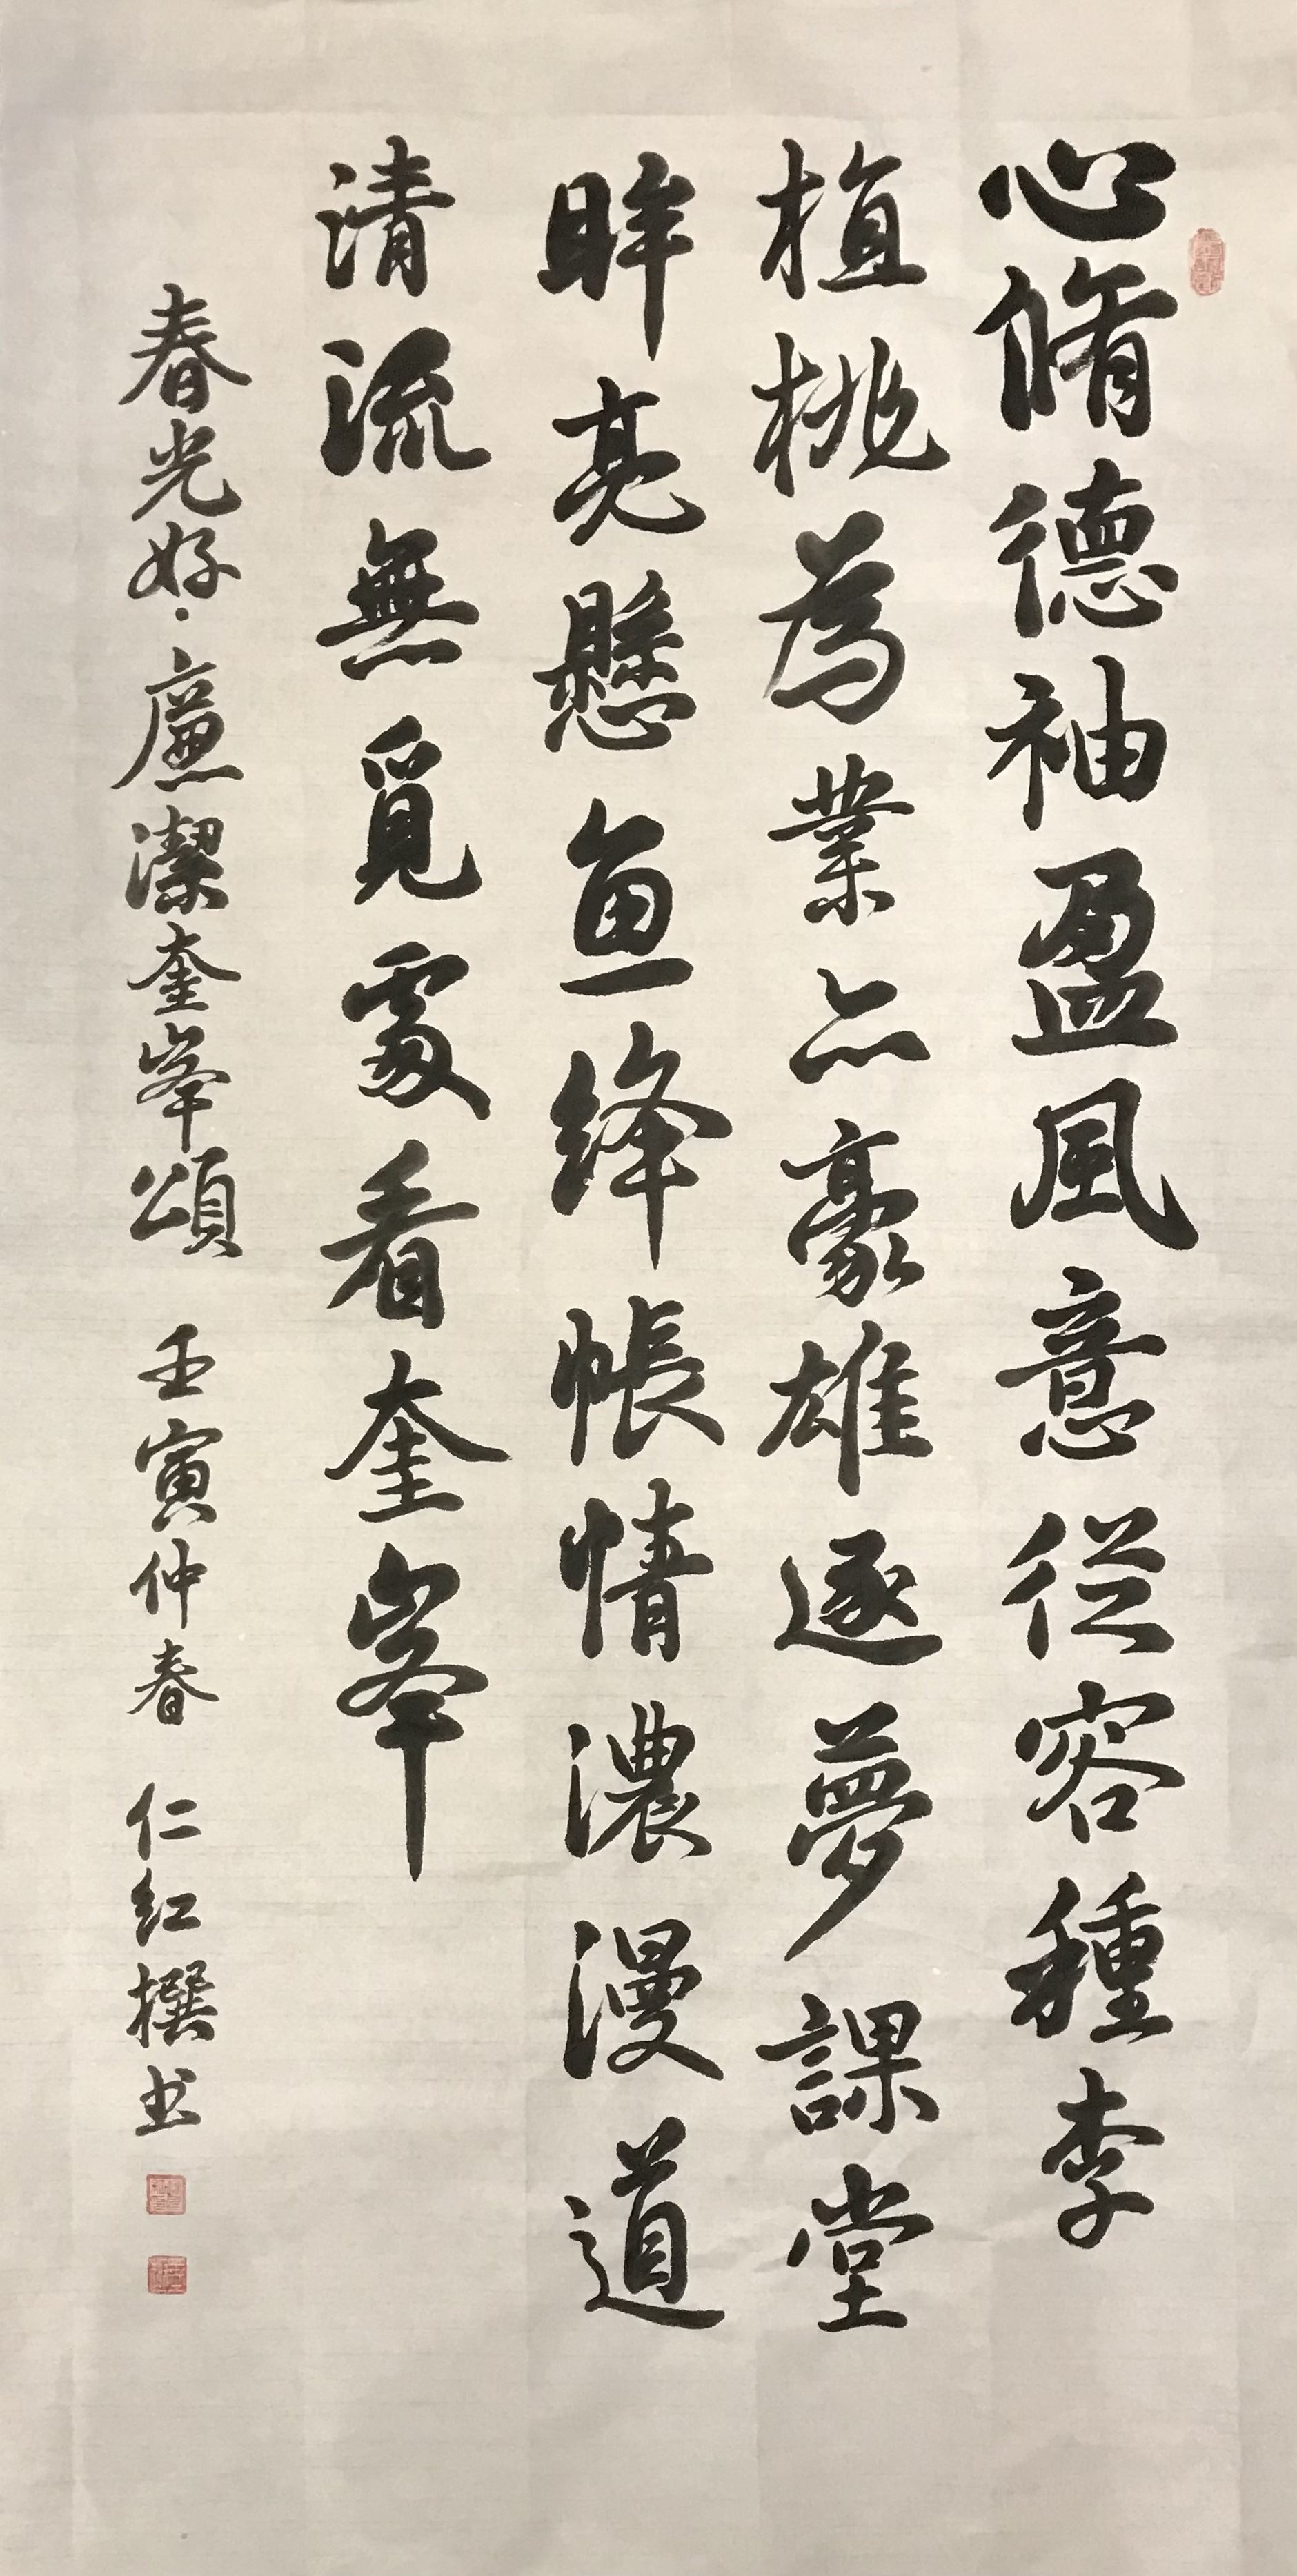 心脩德袖盈風意從容種李
植桃為業亦豪雄逐夢課堂
眸亮懸魚絳帳情濃漫道
清流無覓處看奎峯
春光好·廉潔奎峯頌 壬寅仲春 仁紅撰书